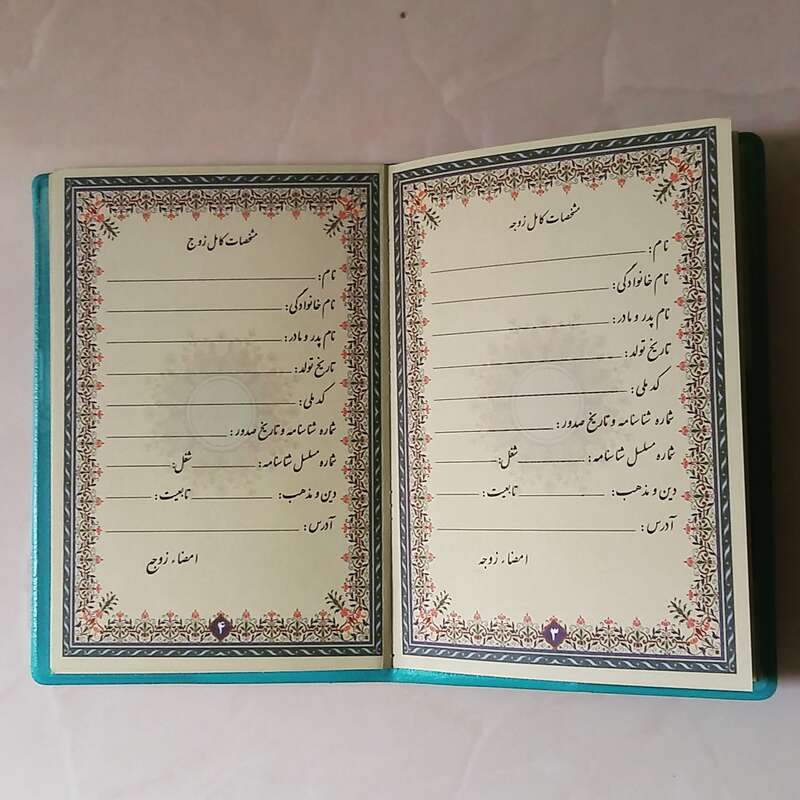 مشخصات کامل زوجه
نام:
نام خانوادگی:
نام پدر و مادر:
تاریخ تولد:
کد ملی:
شماره شناسنامه و تاریخ صدور:
شماره مسلسل شناسنامه: شغل:
دین و مذهب: تابعیت:
آدرس:
امضاء زوجه
۳
مشخصات کامل زوج
نام:
نام خانوادگی:
نام پدر و مادر:
تاریخ تولد:
کد ملی:
شماره شناسنامه و تاریخ صدور:
شماره مسلسل شناسنامه: شغل:
دین و مذهب: تابعیت:
آدرس:
امضاء زوج
۴